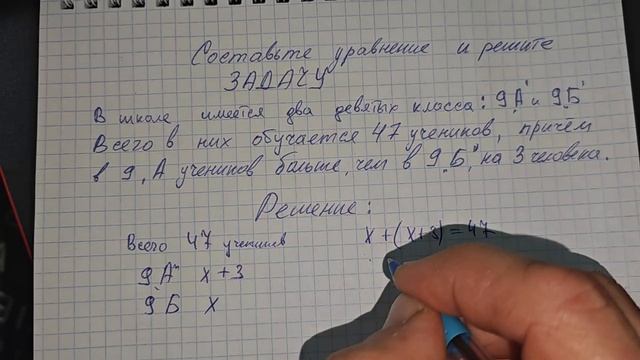 Составьте уравнение и решите
ЗАДАЧУ
В школе имеется два девятых класса: 9„А" и 9„Б"
Всего в них обучается 47 учеников, причём
в 9„А учеников больше, чем в 9„Б", на 3 человека.
Решение:
Всего 47 учеников
x + (x+3) = 47
9„А" x + 3
9„Б x